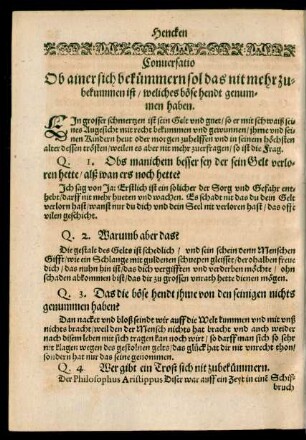 Hencken
Conuersatio
Ob ainer sich bekümmern sol das nit mehr zu-
bekummen ist / weliches böse hendt genum-
men haben.
EIn grosser schmertzen ist sein Gelt vnd guet / so er mit schwaiß sei-
nes Angesichts mit recht bekummen vnd gewunnen / jhme vnd sei-
nen Kindern heut oder morgen zuhelffen vnd in seinem höchsten
alter dessen trösten / weilen es aber nit mehr zuerfragen / so ist die Frag.
Q. 1. Obs manichem besser sey der sein Gelt verlo-
ren hette / alß wan ers noch hette?
Ich sag von Ja: Erstlich ist ein solicher der Sorg vnd Gefahr ent-
hebt / darff nit mehr hueten vnd wachen. Es schadt nit das du dein Gelt
verlorn hast / wanst nur du dich vnd dein Seel nit verloren hast / das offt
vilen geschicht.
Q. 2. Warumb aber das?
Die gestalt des Geltz ist schedlich / vnd sein schein denn Menschen
Gifft / wie ein Schlange mit guldenen schuepen gleisset / derohalben frewe
dich / das nuhn hin ist / das dich vergifften vnd verderben möchte / ohn
schaden abkommen bist / das dir zu grossen vnrath hette dienen mögen.
Q. 3. Das die böse hendt jhme von den seinigen nichts
genummen haben?
Dan nacket vnd bloß seindt wir auff die Welt kummen vnd mit vnß
nichts bracht / weil den der Mensch nichts hat bracht vnd auch wieder
nach disem leben mit sich tragen kan noch wirt / so darff man sich so sehr
nit klagen wegen des gestolnen geltes / das glück hat dir nit vnrecht thon /
sondern hat nur das seine genommen.
Q. 4 Wer gibt ein Trost sich nit zubekümmern.
Der Philosophus Aristippus: Diser war auff ein Zeyt in eine Schiff-
bruch